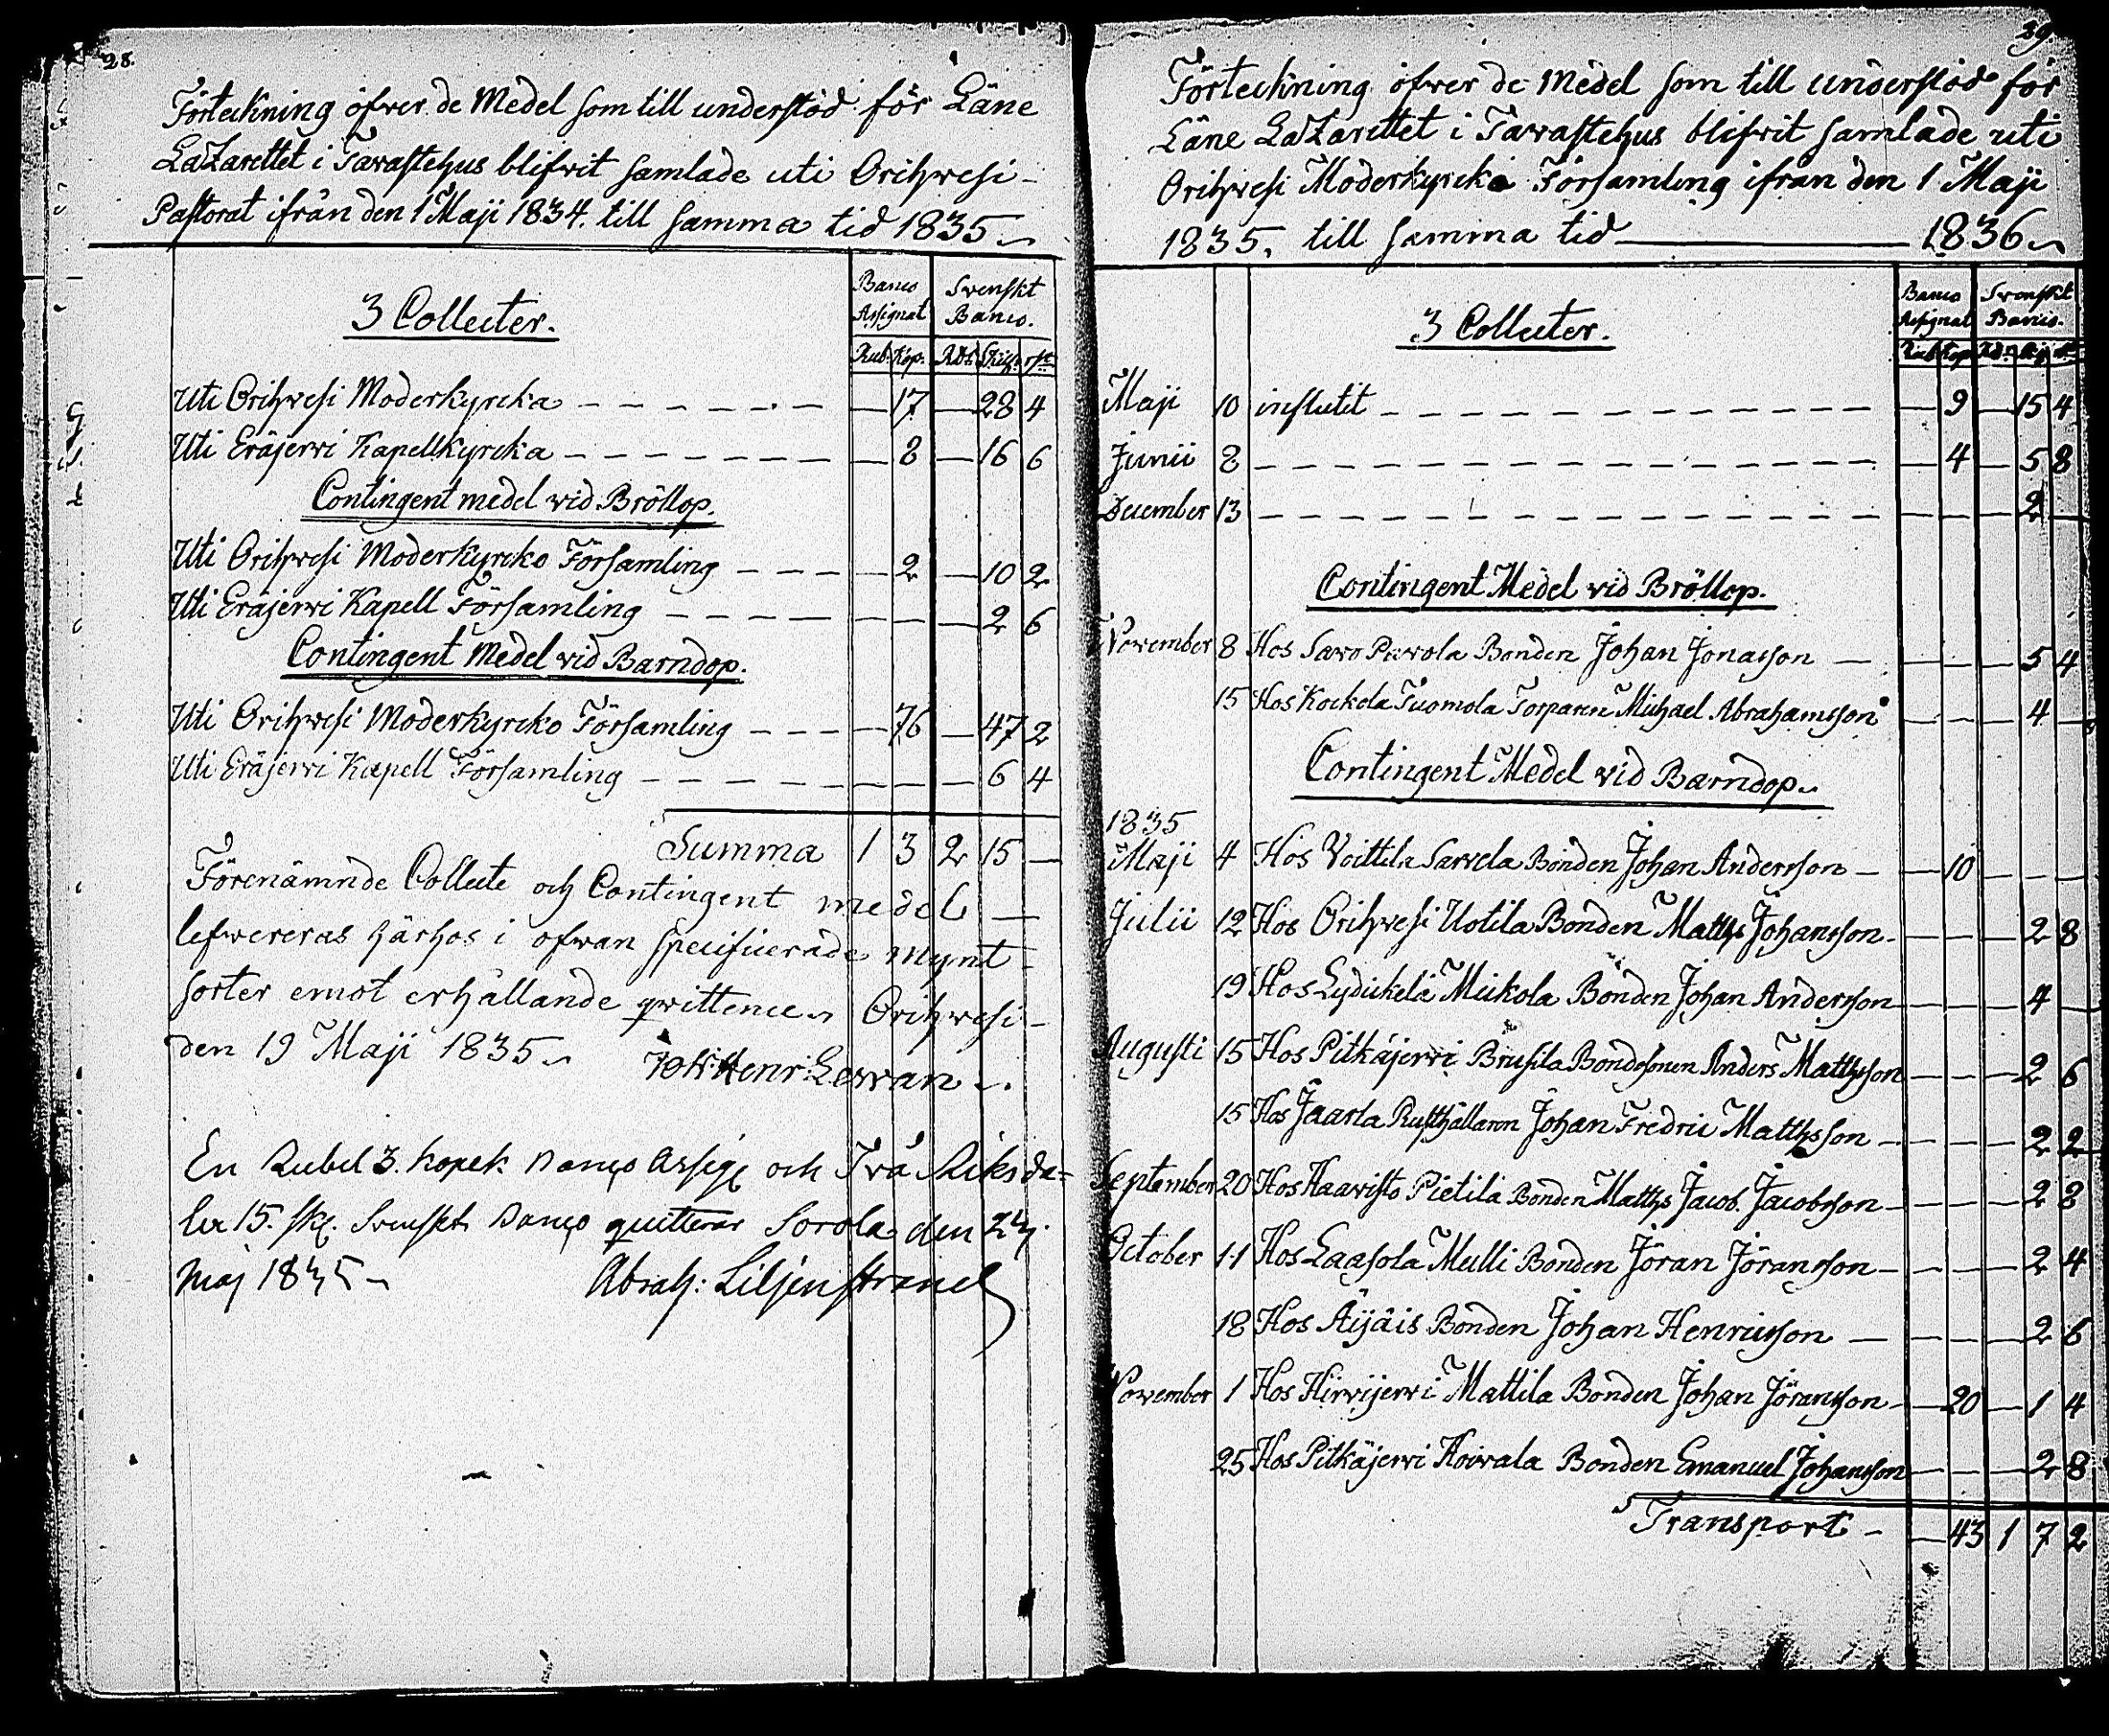 28.
Förteckning öfver de Medel som till understöd för Läne
Lazarettet i Tavastehus blifvit samlade uti Orihvesi
Pastorat ifrån den 1 Maji 1834. till samma tid 1835
3 Collecter.
Banco Assignat Svenskt Banco.
Rub. Kop. Rds Skill. rst
Uti Orihvesi Moderkyrcka — 17 — 28 4
Uti Eräjervi Kapellkyrcka — 8 — 16 6
Contingent medel vid Bröllop.
Uti Orihvesi Moderkyrcko Församling — 2 — 10 2
Uti Eräjervi Kapell Församling — — — 2 6
Contingent Medel vid Barndop.
Uti Orihvesi Moderkyrcko Församling — 76 — 47 2
Uti Eräjervi Kapell Församling — — — 6 4
Summa 1 3 2 15 —
Förenämnde Collecte och Contingent medel
lefvereras härhos i ofvan specificerade mynt
sorter emot erhållande qvittence Orihvesi
den 19 Maji 1835
Joh: Henr: Levan
En Rubel 3. kopek Banco Assig: och Två Riksda=
ler 15. sk. Svenskt Banco quitterar Sorola den 24
Maj 1835
Abrah: Liljenstrand
29.
Förteckning öfver de Medel som till understöd för
Läne Lazarettet i Tavastehus blifvit samlade uti
Orihvesi Moderkyrcko Församling ifrån den 1 Maji
1835, till samma tid 1836
3 Collecter.
Banco Assignat Svenskt Banco.
Rub Kop Rd. Sk rst
Maji 10 influtit — 9 — 15 4
Junii 8 — 4 — 5 8
December 13 — — — 2 —
Contingent Medel vid Bröllop.
November 8 Hos Savo Pavola Bonden Johan Jonasson — — — 5 4
15 Hos Kockola Tuomola Torparen Michael Abrahamsson — — — 4 —
Contingent Medel vid Barndop.
1835
Maji 4 Hos Voittila Sarvela Bonden Johan Andersson — 10 — — —
Julii 12 Hos Orihvesi Uotila Bonden Matths Johansson — — — 2 8
19 Hos Lydickelä Mickola Bonden Johan Andersson — — — 4 —
Augusti 15 Hos Pitkäjervi Brusila Bondesonen Anders Matthsson — — — 2 6
15 Hos Jaarla Rusthållaren Johan Fredric Matthsson — — — 2 2
September 20 Hos Haavisto Pietilä Bonden Matths Jacob Jacobsson — — — 2 8
October 11 Hos Laasola Mulli Bonden Jöran Jöransson — — — 2 4
18 Hos Äijäis Bonden Johan Henricsson — — — 2 6
November 1 Hos Hirvijervi Mattila Bonden Johan Jöransson — 20 — 1 4
25 Hos Pitkäjervi Hoivala Bonden Emanuel Johansson — — — 2 8
Transport — 43 1 7 2